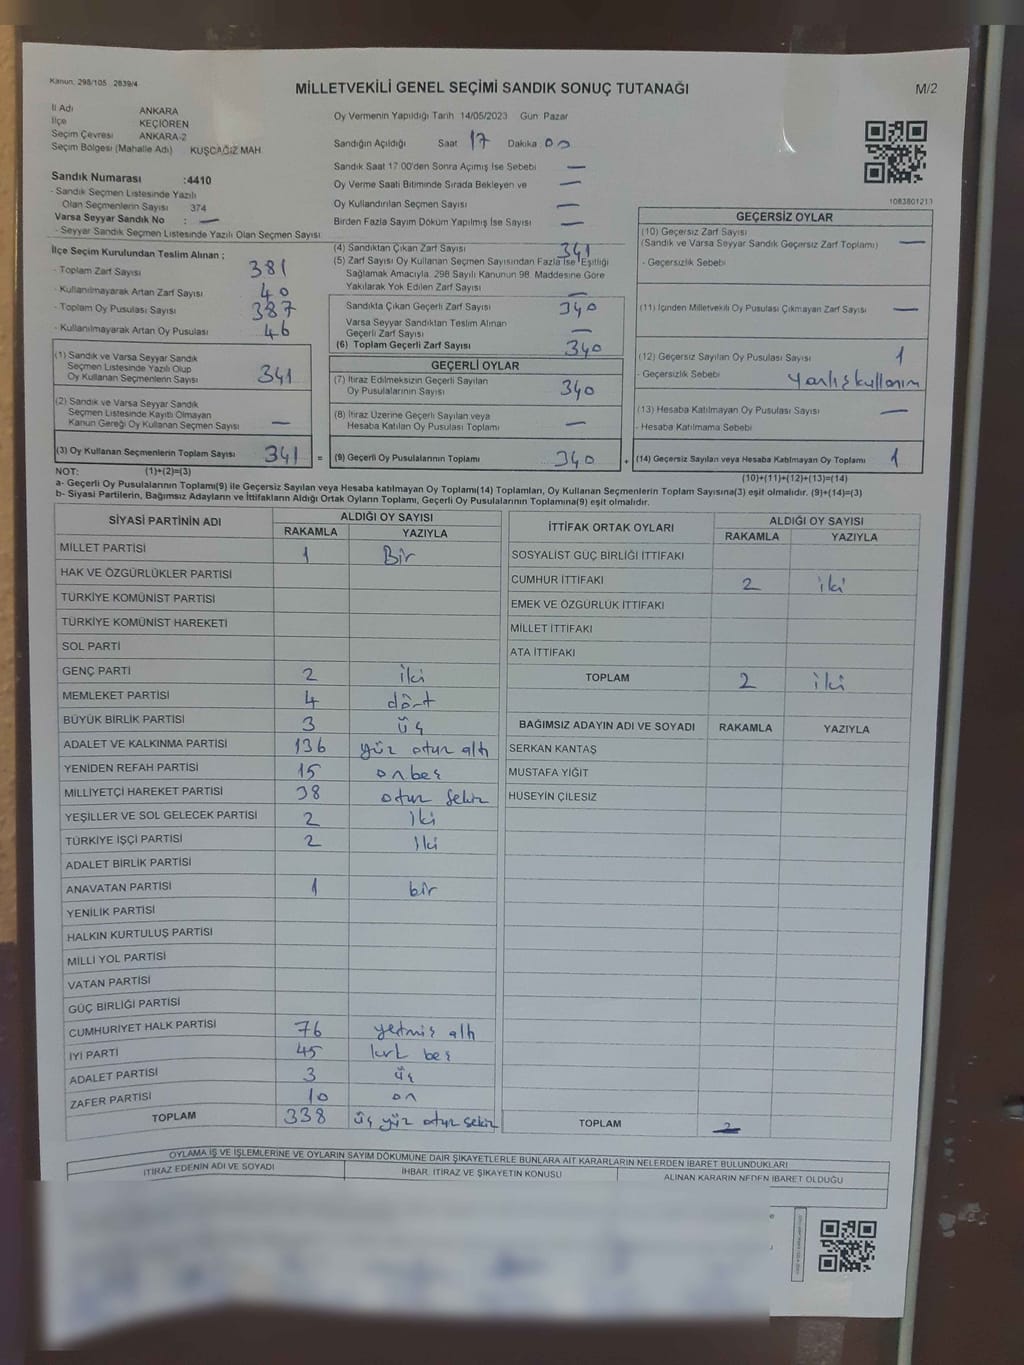 Kanun: 298/105 2839/4
MİLLETVEKİLİ GENEL SEÇİMİ SANDIK SONUÇ TUTANAĞI
M/2
İl Adı ANKARA
İlçe KEÇİÖREN
Seçim Çevresi ANKARA-2
Seçim Bölgesi (Mahalle Adı) KUŞCAĞIZ MAH.
Sandık Numarası :4410
- Sandık Seçmen Listesinde Yazılı
Olan Seçmenlerin Sayısı 374
Varsa Seyyar Sandık No : —
- Seyyar Sandık Seçmen Listesinde Yazılı Olan Seçmen Sayısı
İlçe Seçim Kurulundan Teslim Alınan ;
- Toplam Zarf Sayısı 381
- Kullanılmayarak Artan Zarf Sayısı 40
- Toplam Oy Pusulası Sayısı 387
- Kullanılmayarak Artan Oy Pusulası 46
(1) Sandık ve Varsa Seyyar Sandık
Seçmen Listesinde Yazılı Olup
Oy Kullanan Seçmenlerin Sayısı 341
(2) Sandık ve Varsa Seyyar Sandık
Seçmen Listesinde Kayıtlı Olmayan
Kanun Gereği Oy Kullanan Seçmen Sayısı —
(3) Oy Kullanan Seçmenlerin Toplam Sayısı 341 =
Oy Vermenin Yapıldığı Tarih 14/05/2023 Gün Pazar
Sandığın Açıldığı Saat 17 Dakika 00
Sandık Saat 17:00'den Sonra Açımış İse Sebebi —
Oy Verme Saati Bitiminde Sırada Bekleyen ve —
Oy Kullandırılan Seçmen Sayısı —
Birden Fazla Sayım Döküm Yapılmış İse Sayısı —
(4) Sandıktan Çıkan Zarf Sayısı 341
(5) Zarf Sayısı Oy Kullanan Seçmen Sayısından Fazla İse Eşitliği
Sağlamak Amacıyla 298 Sayılı Kanunun 98. Maddesine Göre
Yakılarak Yok Edilen Zarf Sayısı —
Sandıkta Çıkan Geçerli Zarf Sayısı 340
Varsa Seyyar Sandıktan Teslim Alınan
Geçerli Zarf Sayısı —
(6) Toplam Geçerli Zarf Sayısı 340
GEÇERLİ OYLAR
(7) İtiraz Edilmeksizin Geçerli Sayılan
Oy Pusulalarının Sayısı 340
(8) İtiraz Üzerine Geçerli Sayılan veya
Hesaba Katılan Oy Pusulası Toplamı —
(9) Geçerli Oy Pusulalarının Toplamı 340 +
1083801213
GEÇERSİZ OYLAR
(10) Geçersiz Zarf Sayısı
(Sandık ve Varsa Seyyar Sandık Geçersiz Zarf Toplamı) —
- Geçersizlik Sebebi
(11) İçinden Milletvekili Oy Pusulası Çıkmayan Zarf Sayısı —
(12) Geçersiz Sayılan Oy Pusulası Sayısı 1
- Geçersizlik Sebebi Yanlış kullanım
(13) Hesaba Katılmayan Oy Pusulası Sayısı —
- Hesaba Katılmama Sebebi
(14) Geçersiz Sayılan veya Hesaba Katılmayan Oy Toplamı 1
NOT: (1)+(2)=(3) (10)+(11)+(12)+(13)=(14)
a- Geçerli Oy Pusulalarının Toplamı(9) ile Geçersiz Sayılan veya Hesaba katılmayan Oy Toplamı(14) Toplamları, Oy Kullanan Seçmenlerin Toplam Sayısına(3) eşit olmalıdır. (9)+(14)=(3)
b- Siyasi Partilerin, Bağımsız Adayların ve İttifakların Aldığı Ortak Oyların Toplamı, Geçerli Oy Pusulalarının Toplamına(9) eşit olmalıdır.
SİYASİ PARTİNİN ADI ALDIĞI OY SAYISI
RAKAMLA YAZIYLA
MİLLET PARTİSİ 1 Bir
HAK VE ÖZGÜRLÜKLER PARTİSİ
TÜRKİYE KOMÜNİST PARTİSİ
TÜRKİYE KOMÜNİST HAREKETİ
SOL PARTİ
GENÇ PARTİ 2 iki
MEMLEKET PARTİSİ 4 dört
BÜYÜK BİRLİK PARTİSİ 3 üç
ADALET VE KALKINMA PARTİSİ 136 yüz otuz altı
YENİDEN REFAH PARTİSİ 15 onbeş
MİLLİYETÇİ HAREKET PARTİSİ 38 otuz sekiz
YEŞİLLER VE SOL GELECEK PARTİSİ 2 İki
TÜRKİYE İŞÇİ PARTİSİ 2 İki
ADALET BİRLİK PARTİSİ
ANAVATAN PARTİSİ 1 bir
YENİLİK PARTİSİ
HALKIN KURTULUŞ PARTİSİ
MİLLİ YOL PARTİSİ
VATAN PARTİSİ
GÜÇ BİRLİĞİ PARTİSİ
CUMHURİYET HALK PARTİSİ 76 yetmiş altı
İYİ PARTİ 45 kırk beş
ADALET PARTİSİ 3 üç
ZAFER PARTİSİ 10 on
TOPLAM 338 üç yüz otuz sekiz
İTTİFAK ORTAK OYLARI ALDIĞI OY SAYISI
RAKAMLA YAZIYLA
SOSYALİST GÜÇ BİRLİĞİ İTTİFAKI
CUMHUR İTTİFAKI 2 iki
EMEK VE ÖZGÜRLÜK İTTİFAKI
MİLLET İTTİFAKI
ATA İTTİFAKI
TOPLAM 2 iki
BAĞIMSIZ ADAYIN ADI VE SOYADI RAKAMLA YAZIYLA
SERKAN KANTAŞ
MUSTAFA YİĞİT
HÜSEYİN ÇİLESİZ
TOPLAM
OYLAMA İŞ VE İŞLEMLERİNE VE OYLARIN SAYIM DÖKÜMÜNE DAİR ŞİKAYETLERLE BUNLARA AİT KARARLARIN NELERDEN İBARET BULUNDUKLARI
İTİRAZ EDENİN ADI VE SOYADI İHBAR, İTİRAZ VE ŞİKAYETİN KONUSU ALINAN KARARIN NEDEN İBARET OLDUĞU